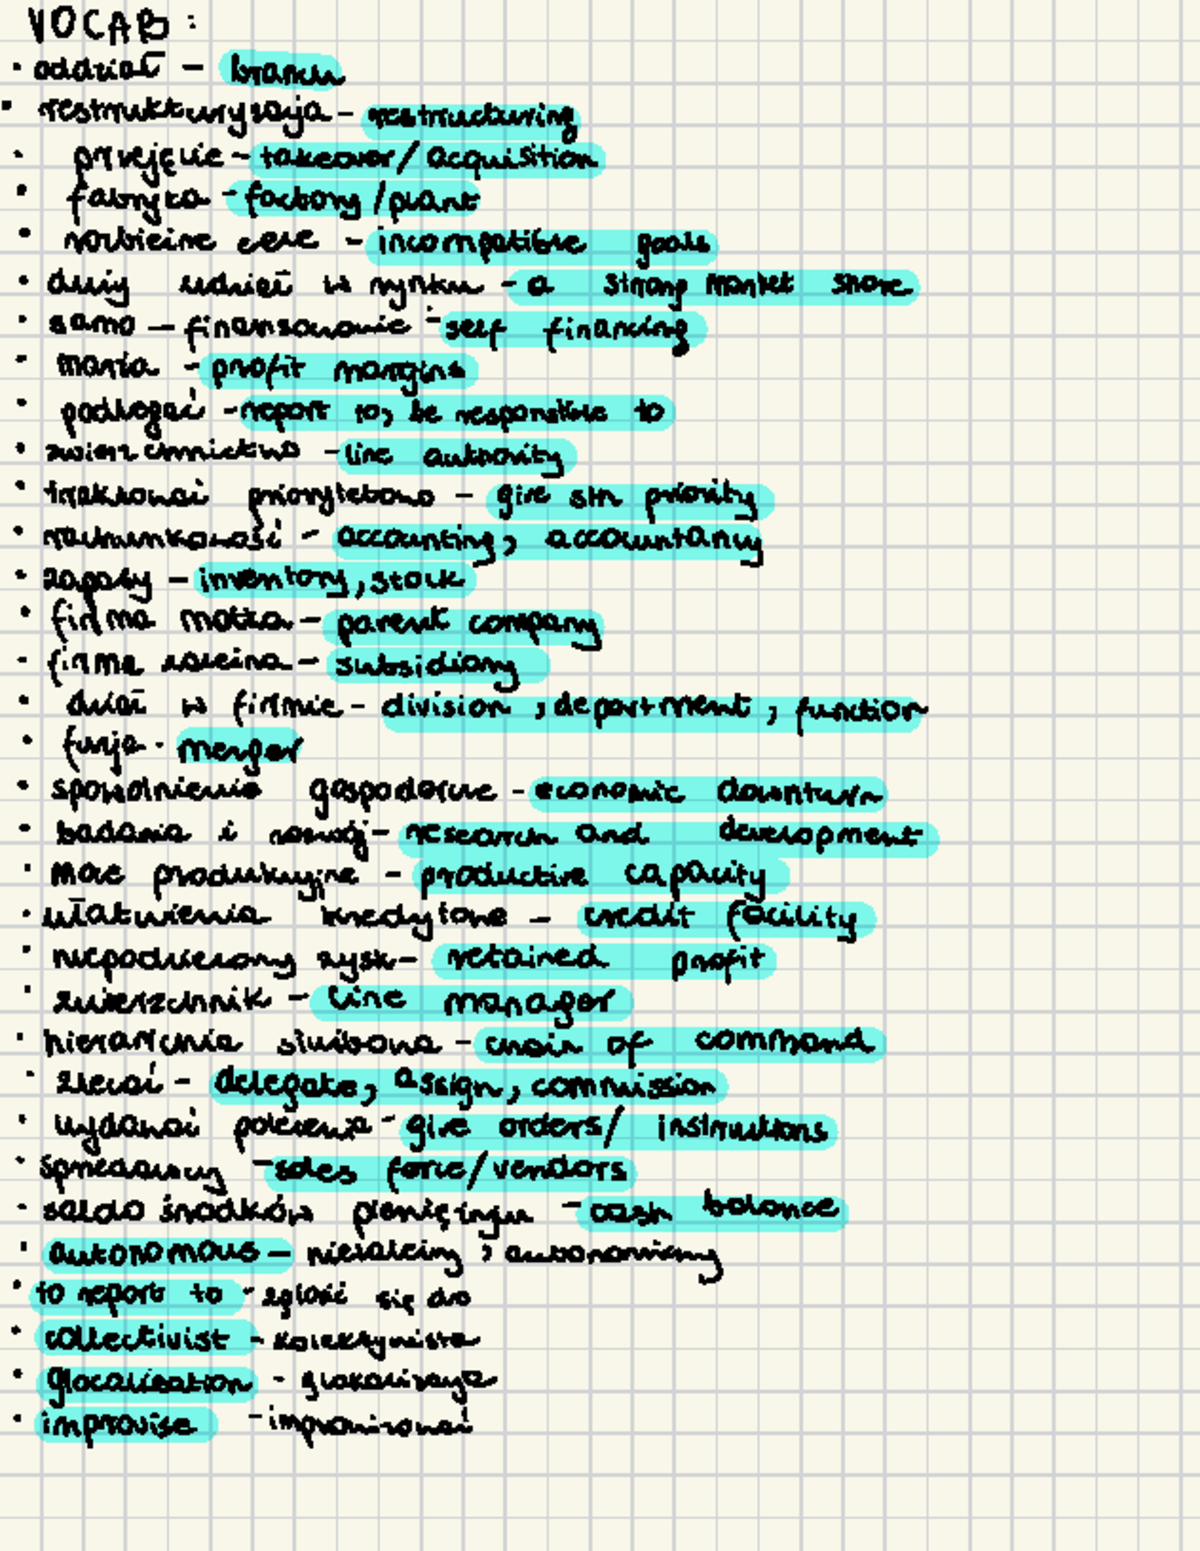 VOCAB :
• oddział – branch
• restrukturyzacja – restructuring
• przejęcie – takeover / acquisition
• fabryka – factory / plant
• rozbieżne cele – incompatible goals
• duży udział w rynku – a strong market share
• samo – finansowanie – self financing
• marża – profit margins
• podlegać – report to, be responsible to
• zwierzchnictwo – line authority
• traktować priorytetowo – give sth priority
• rachunkowość – accounting, accountancy
• zapasy – inventory, stock
• firma matka – parent company
• firma zależna – subsidiary
• dział w firmie – division, department, function
• fuzja - merger
• spowolnienie gospodarcze – economic downturn
• badania i rozwój – research and development
• moce produkcyjne – productive capacity
• ułatwienia kredytowe – credit facility
• niepodzielony zysk – retained profit
• zwierzchnik – line manager
• hierarchia służbowa – chain of command
• zlecać – delegate, assign, commission
• wydawać polecenia – give orders / instructions
• sprzedawcy – sales force / vendors
• saldo środków pieniężnych – cash balance
• autonomous – niezależny, autonomiczny
• to report to - zgłosić się do
• collectivist – kolektywista
• glocalisation - glokalizacja
• improvise – improwizować